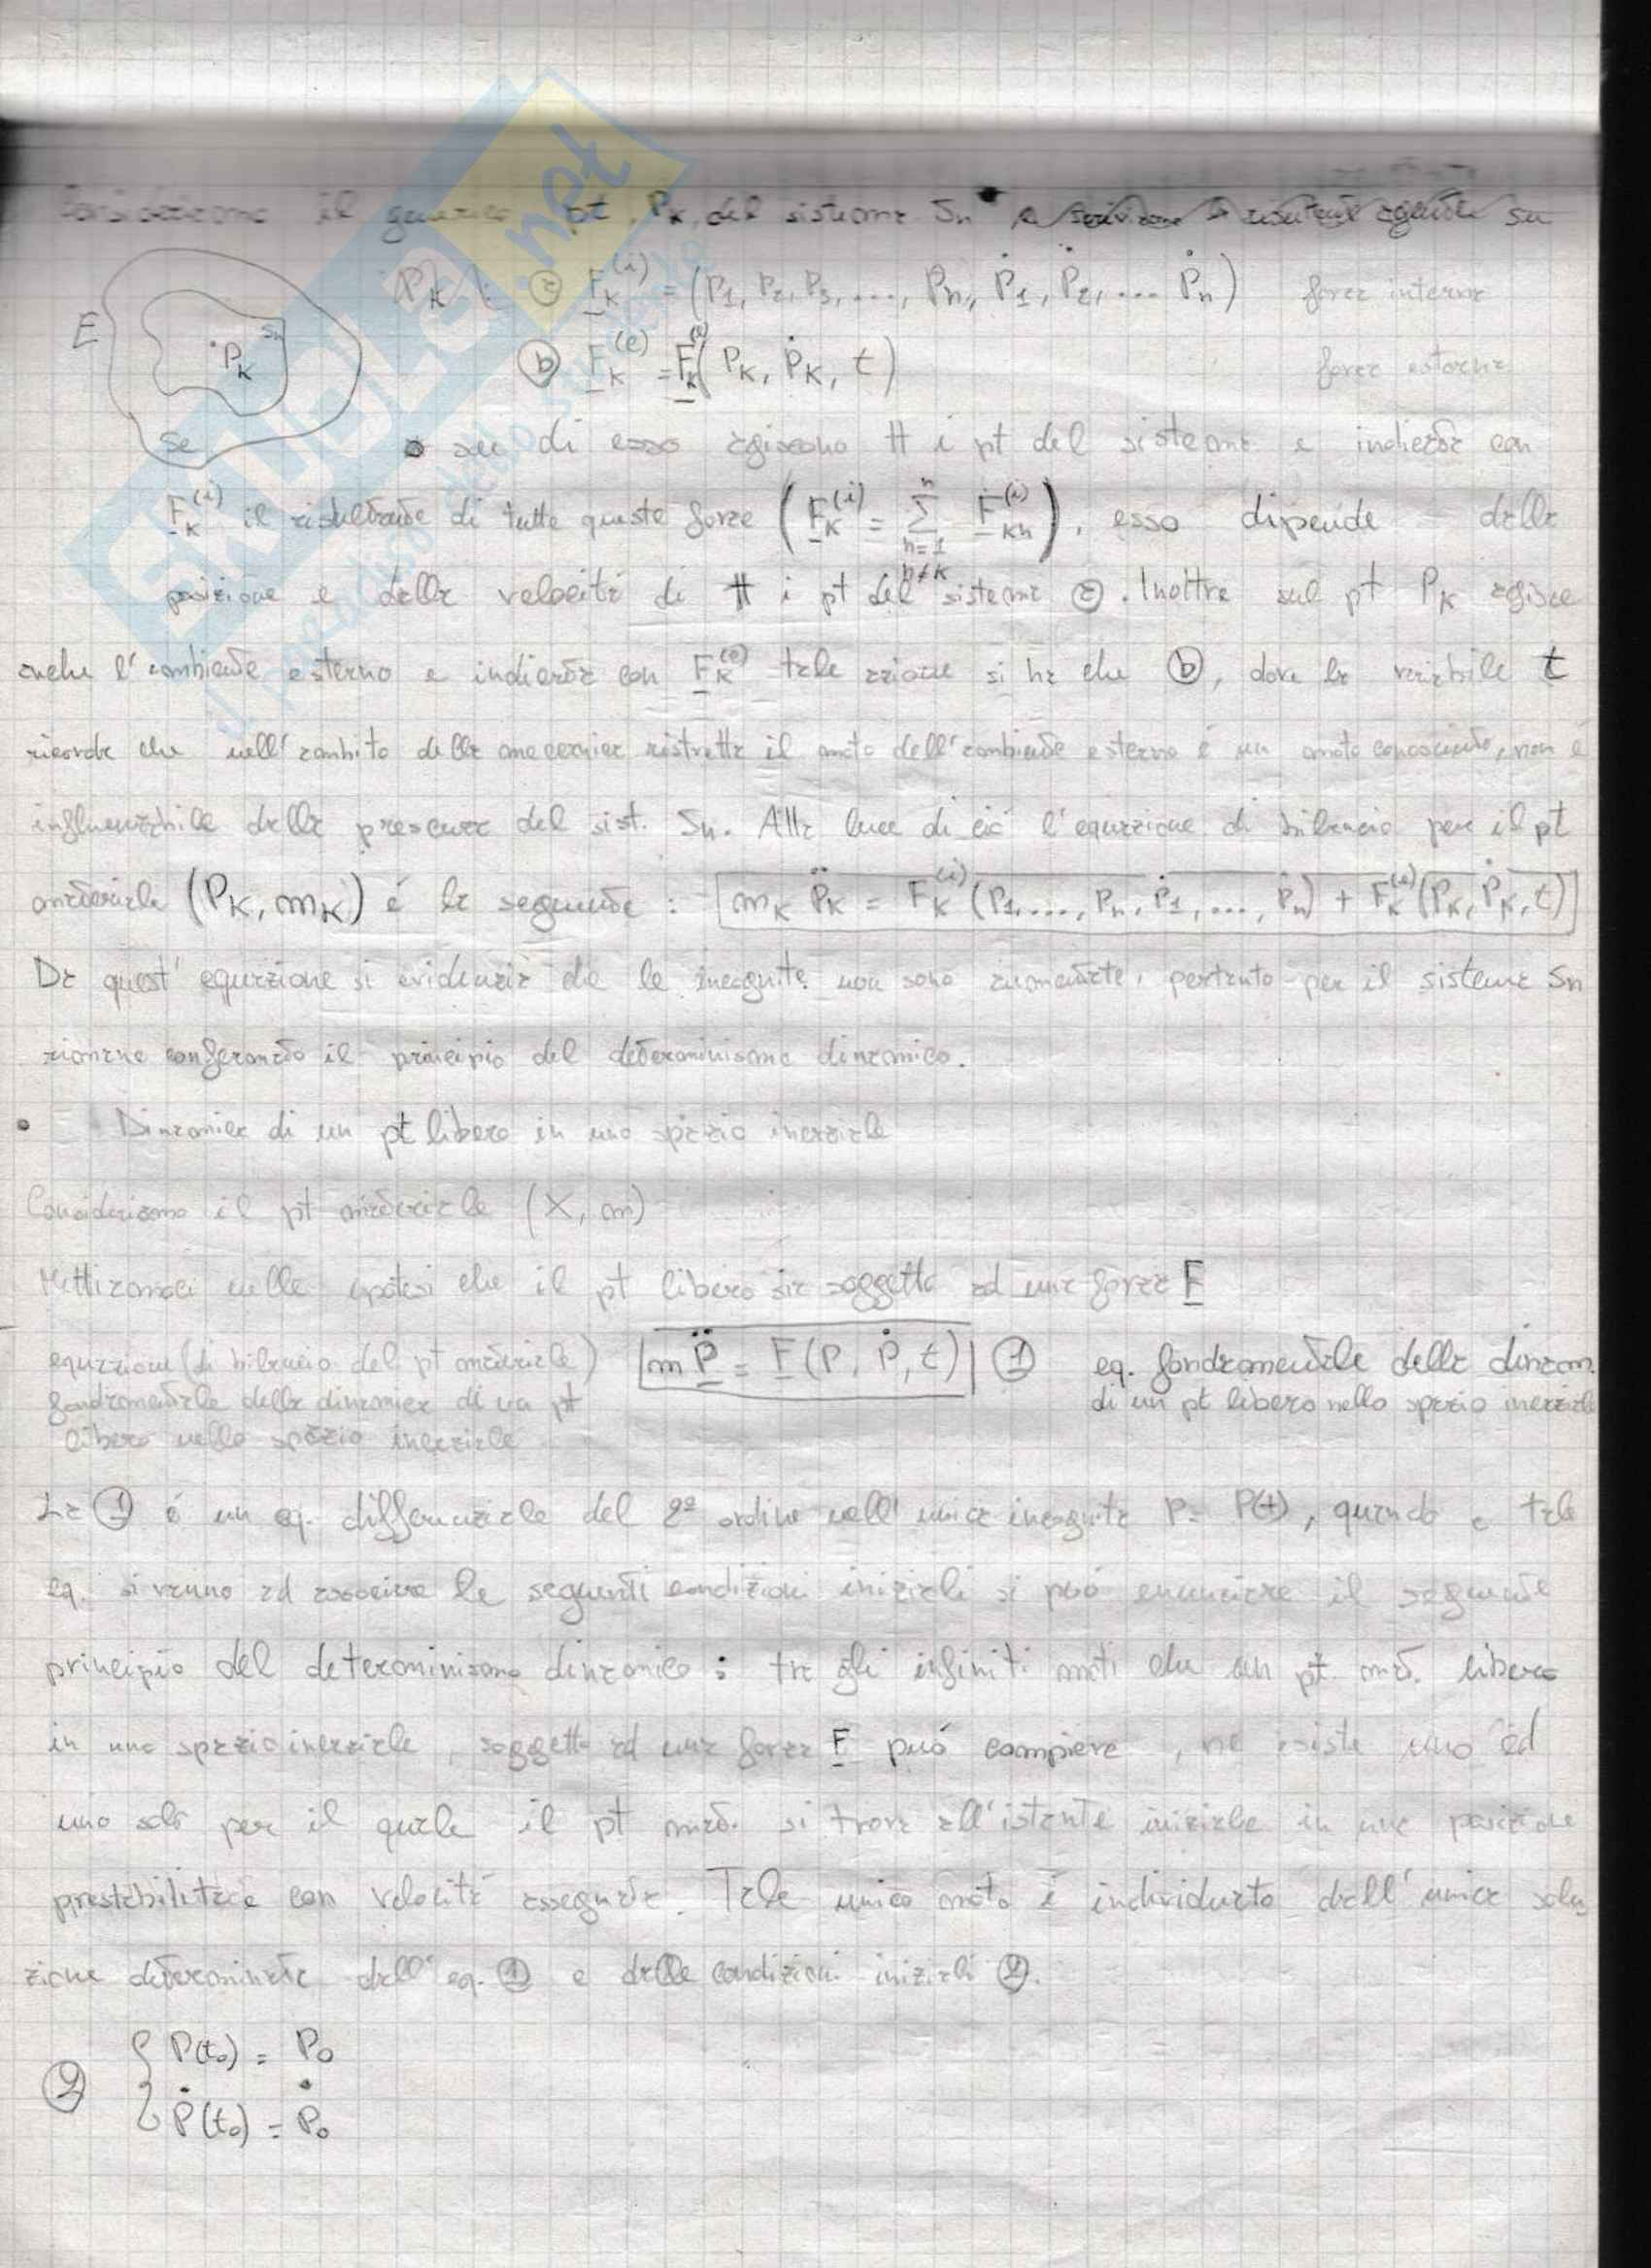 Consideriamo il generico pt. Pk del sistema Sn e scriviamo le risultanti agenti su
Pk : ⓐ Fk^(i) = (P1, P2, P3, ..., Pn, Ṗ1, Ṗ2, ... Ṗn) forze interne
E
Sn
·Pk
Se
ⓑ Fk^(e) = Fk^(e)(Pk, Ṗk, t) forze esterne
su di esso agiscono tt i pt del sistema e indicata con
Fk^(i) il risultante di tutte queste forze (Fk^(i) = Σ_{h=1, h≠k}^{n} Fkh^(i)), esso dipende dalla
posizione e dalla velocità di tt i pt del sistema ⓐ. Inoltre sul pt Pk agisce
anche l'ambiente esterno e indicata con Fk^(e) tale azione si ha che ⓑ, dove la variabile t
ricorda che nell'ambito della meccanica ristretta il moto dell'ambiente esterno è un moto conosciuto, non è
influenzabile dalla presenza del sist. Sn. Alla luce di ciò l'equazione di bilancio per il pt
materiale (Pk, mk) é la seguente : mk P̈k = Fk^(i)(P1, ..., Pn, Ṗ1, ..., Ṗn) + Fk^(e)(Pk, Ṗk, t)
Da quest'equazione si evidenzia che le incognite non sono aumentate, pertanto per il sistema Sn
rimane confermato il principio del determinismo dinamico.
• Dinamica di un pt libero in uno spazio inerziale
Consideriamo il pt materiale (X, m)
Mettiamoci nelle ipotesi che il pt libero sia soggetto ad una forza F
equazione (di bilancio del pt materiale) m P̈ = F(P, Ṗ, t) ① eq. fondamentale della dinam.
fondamentale della dinamica di un pt di un pt libero nello spazio inerziale
libero nello spazio inerziale
La ① é un eq. differenziale del 2º ordine nell'unica incognita P = P(t), quando a tale
eq. si vanno ad associare le seguenti condizioni iniziali si può enunciare il seguente
principio del determinismo dinamico : tra gli infiniti moti che un pt. mat. libero
in uno spazio inerziale, soggetto ad una forza F può compiere, ne esiste uno ed
uno solo per il quale il pt mat. si trova all'istante iniziale in una posizione
prestabilita e con velocità assegnata. Tale unico moto è individuato dall'unica solu
zione determinata dall'eq. ① e dalle condizioni iniziali ②.
② { P(t₀) = P₀
Ṗ(t₀) = Ṗ₀
SKUOLA.net